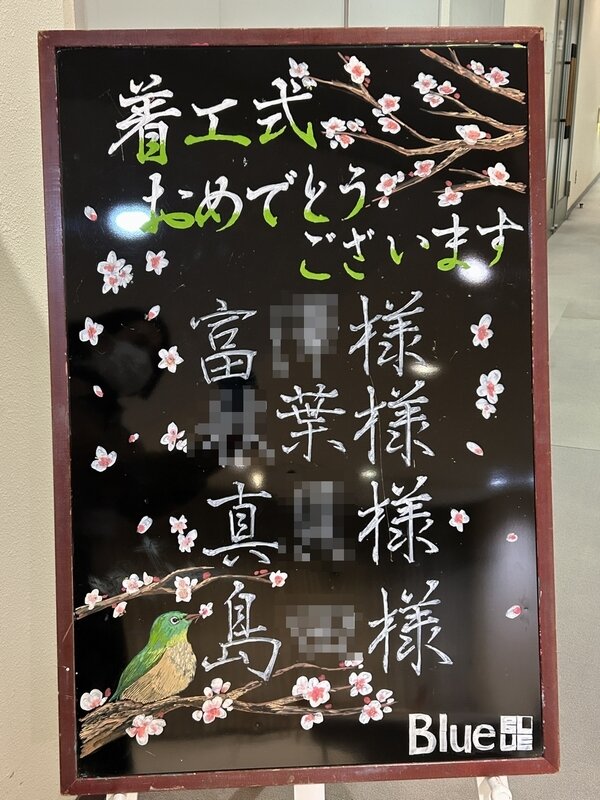 着工式
おめでとう
ございます
富 様
葉様
真 様
島 様
Blue BLUE